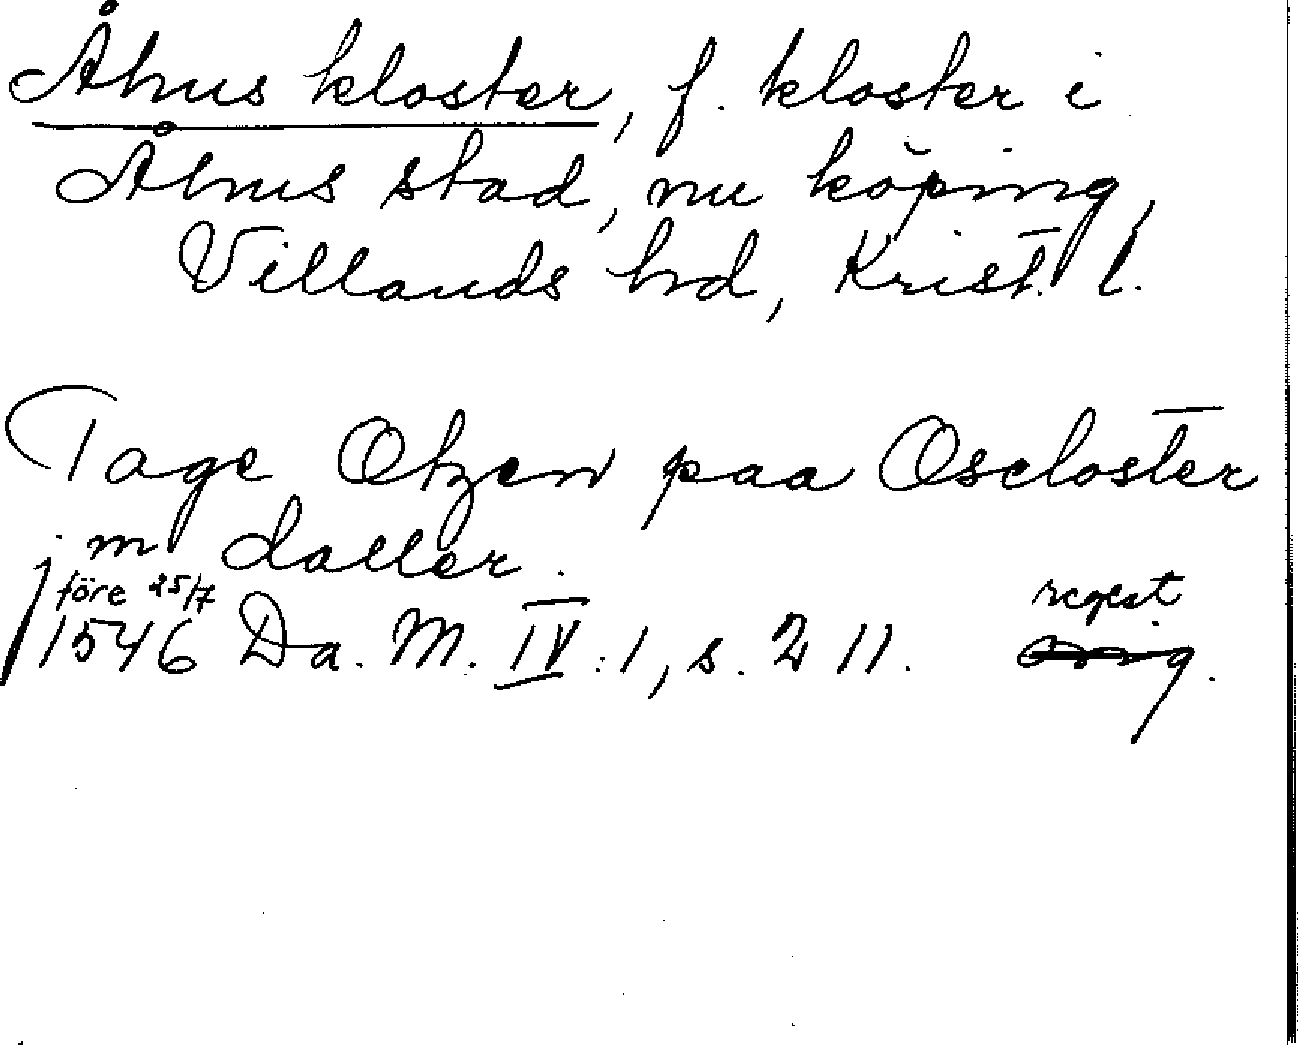 Åhus kloster, f. kloster i
Åhus stad, nu köping,
Villands hd, Krist. l.
Tage Otzen paa Oscloster
j m daller.
före 25/7 regest
1546 Da. M. IV:1, s. 211. orig.